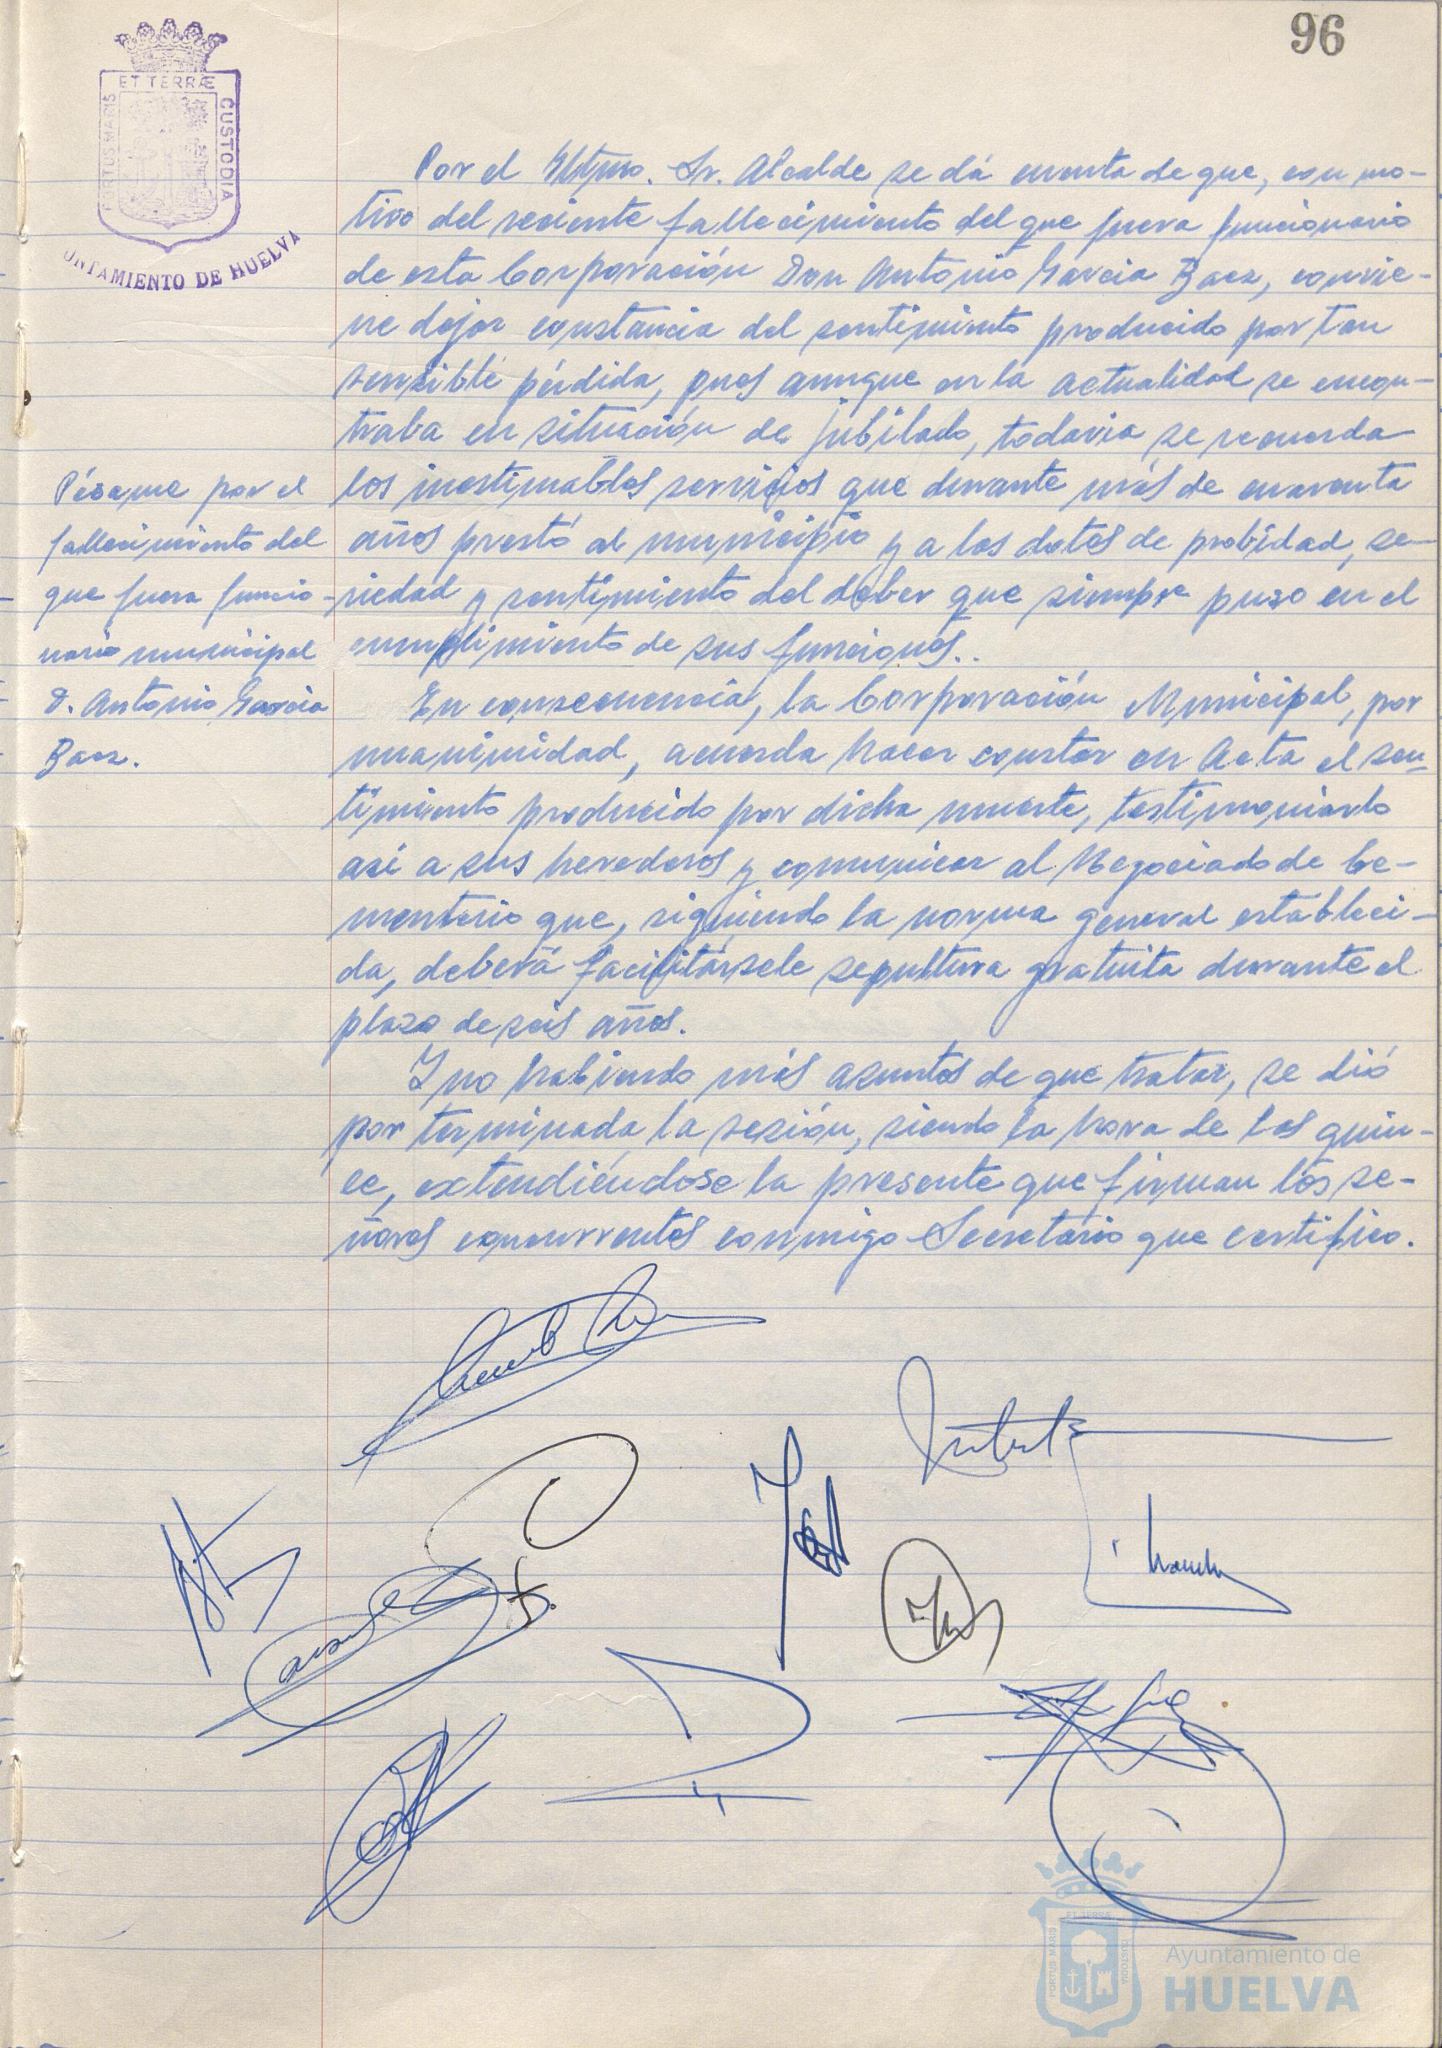 96
ET TERRÆ
PORTUS MARIS
CUSTODIA
UNTAMIENTO DE HUELVA
Por el Iltmo. Sr. Alcalde se dá cuenta de que, con mo-
tivo del reciente fallecimiento del que fuera funcionario
de esta Corporación Don Antonio Garcia Baez, convie-
ne dejar constancia del sentimiento producido por tan
sensible pérdida, pues aunque en la actualidad se encon-
traba en situación de jubilado, todavia se recuerda
los inestimables servicios que durante más de cuarenta
años prestó al municipio y a los dotes de probidad, se-
riedad y sentimiento del deber que siempre puso en el
cumplimiento de sus funciones..
Pésame por el
fallecimiento del
que fuera funcio-
nario municipal
D. Antonio Garcia
Baez.
En consecuencia, la Corporación Municipal, por
unanimidad, acuerda hacer constar en Acta el sen-
timiento producido por dicha muerte, testimoniarlo
asi a sus herederos y comunicar al Negociado de Ce-
menterio que, siguiendo la norma general estableci-
da, deberá facilitársele sepultura gratuita durante el
plazo de seis años.
Y no habiendo más asuntos de que tratar, se dió
por terminada la sesión, siendo la hora de las quin-
ce, extendiéndose la presente que firman los se-
ñores concurrentes conmigo Secretario que certifico.
ET TERRÆ
PORTUS MARIS
CUSTODIA
Ayuntamiento de
HUELVA